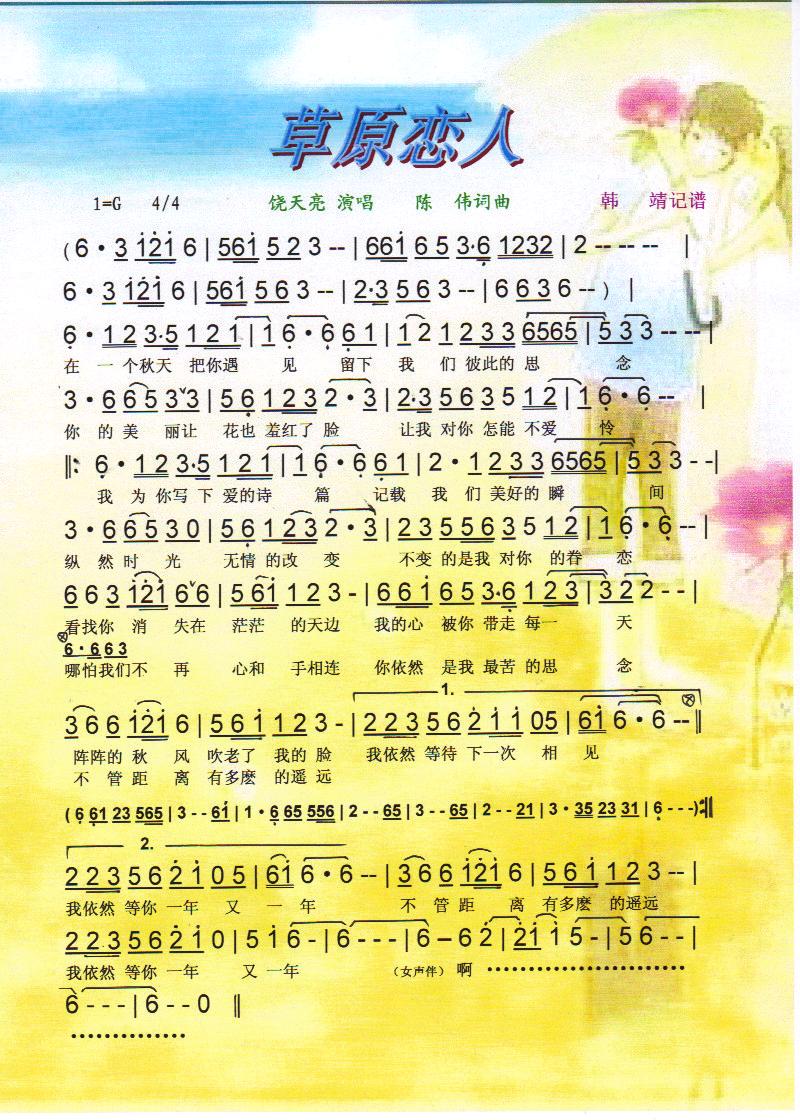 草原恋人
1=G 4/4 饶天亮 演唱 陈 伟词曲 韩 靖记谱
( 6 · 3 1 2 1 6 | 5 6 1 5 2 3 -- | 6 6 1 6 5 3·6 1232 | 2 -- -- -- |
6 · 3 1 2 1 6 | 5 6 1 5 6 3 -- | 2·3 5 6 3 -- | 6 6 3 6 -- ) |
6 · 1 2 3·5 1 2 1 | 1 6 · 6 6 1 | 1 2 1 2 3 3 6565 | 5 3 3 -- -- |
在 一 个秋天 把你遇 见 留下 我 们 彼此的 思 念
3 · 6 6 5 3 3 | 5 6 1 2 3 2 · 3 | 2·3 5 6 3 5 1 2 | 1 6 · 6 -- |
你 的 美 丽让 花也 羞红了 脸 让我 对你 怎能 不爱 怜
‖: 6 · 1 2 3·5 1 2 1 | 1 6 · 6 6 1 | 2 · 1 2 3 3 6565 | 5 3 3 - - |
我 为 你写 下 爱的诗 篇 记载 我 们 美好的 瞬 间
3 · 6 6 5 3 0 | 5 6 1 2 3 2 · 3 | 2 3 5 5 6 3 5 1 2 | 1 6 · 6 -- |
纵 然 时 光 无情 的改 变 不变 的是我 对你 的眷 恋
6 6 3 1 2 1 6 6 | 5 6 1 1 2 3 - | 6 6 1 6 5 3·6 1 2 3 | 3 2 2 -- |
看找你 消 失在 茫茫 的天边 我的心 被你 带走 每一 天
6 · 6 6 3
哪怕我们不 再 心和 手相连 你依然 是我 最苦 的思 念
1.
3 6 6 1 2 1 6 | 5 6 1 1 2 3 - | 2 2 3 5 6 2 1 1 05 | 6 1 6 · 6 -- ‖
阵阵的 秋 风 吹老了 我的 脸 我依然 等待 下一次 相 见
不 管 距 离 有多麽 的遥远
( 6 61 23 565 | 3 - - 61 | 1 · 6 65 556 | 2 - - 65 | 3 - - 65 | 2 - - 21 | 3 · 35 23 31 | 6 - - - ) :‖
2.
2 2 3 5 6 2 1 0 5 | 6 1 6 · 6 -- | 3 6 6 1 2 1 6 | 5 6 1 1 2 3 -- |
我依然 等你 一年 又 一 年 不 管 距 离 有多麽 的遥远
2 2 3 5 6 2 1 0 | 5 1 6 - | 6 - - - | 6 – 6 2 | 2 1 1 5 - | 5 6 - - |
我依然 等你 一年 又一年 (女声伴) 啊 ••••••••••••••••••••••
6 - - - | 6 - - 0 ‖
••••••••••••••